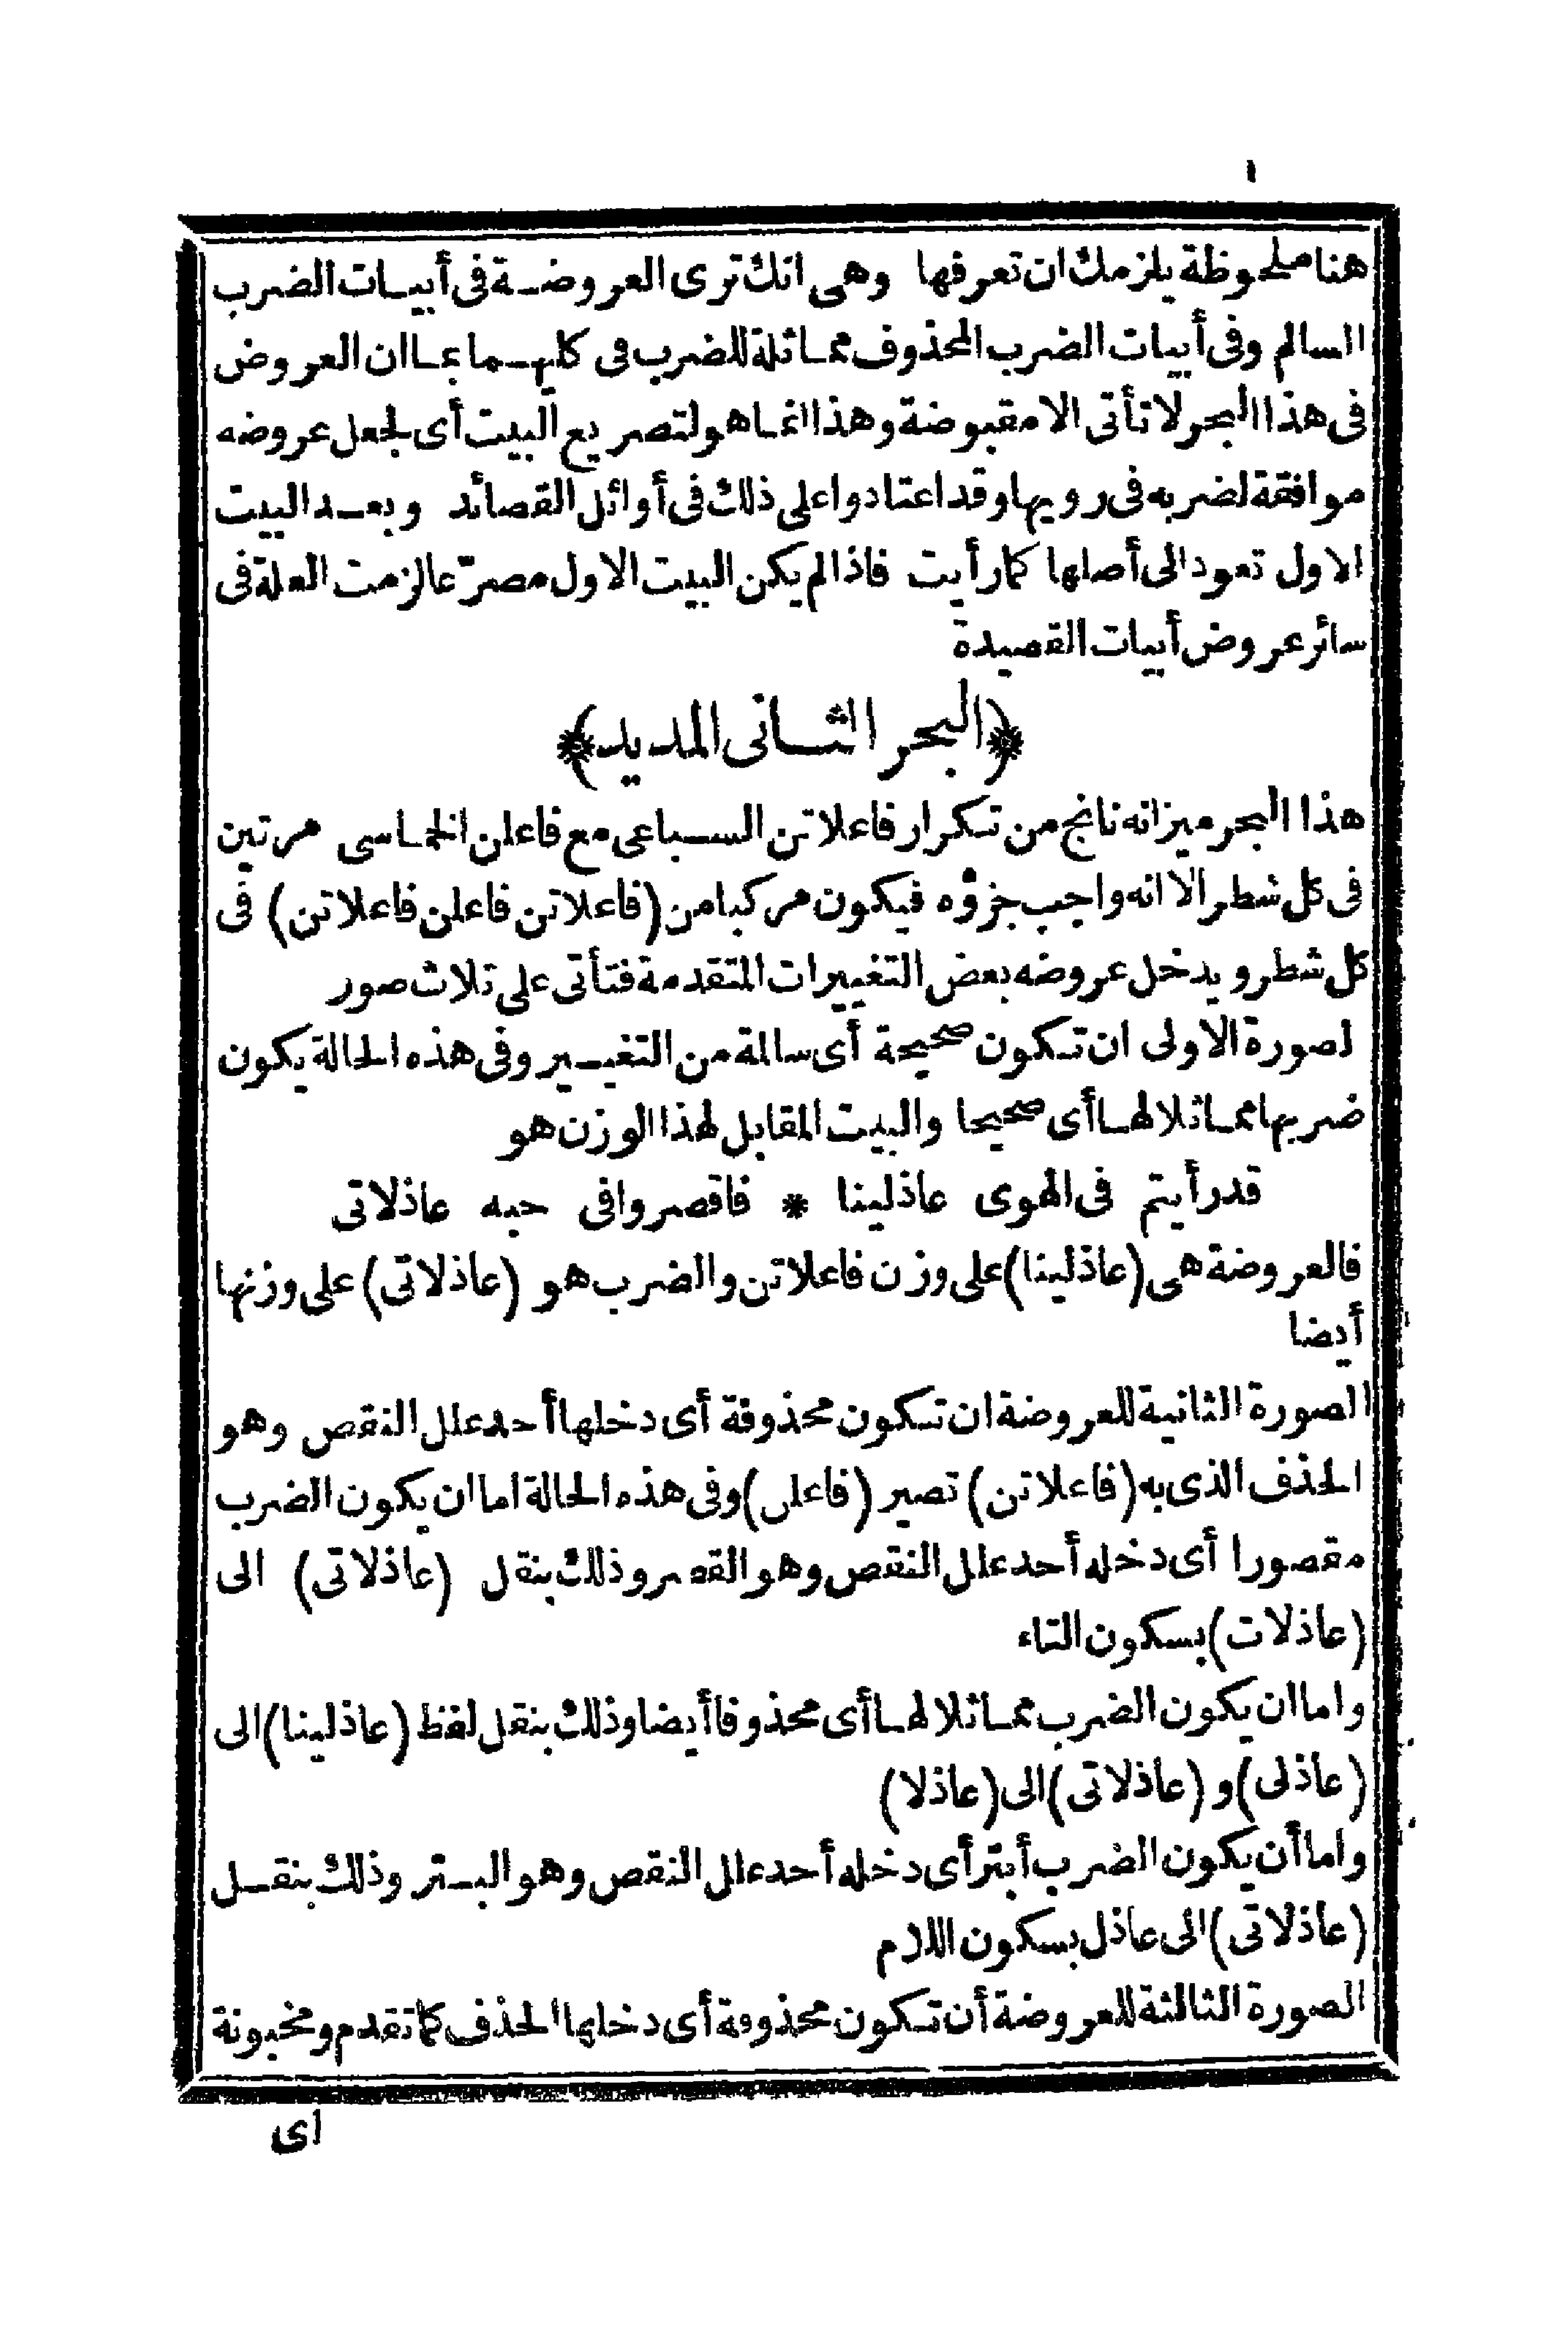 ١
هنا ملحوظة يلزمك ان تعرفها وهى انك ترى العروضة فى أبيات الضرب
السالم وفى أبيات الضرب المحذوف مماثلة للضرب فى كليهما بما ان العروض
فى هذا البحر لا تأتى الا مقبوضة وهذا انما هو لتصريع البيت أى لجعل عروضه
موافقة لضربه فى رويها وقد اعتادوا على ذلك فى أوائل القصائد وبعد البيت
الاول تعود الى أصلها كما رأيت فاذا لم يكن البيت الاول مصرّعا لزمت العلة فى
سائر عروض أبيات القصيدة
﴿البحر الثانى المديد﴾
هذا البحر ميزانه ناتج من تكرار فاعلاتن السباعى مع فاعلن الخماسى مرتين
فى كل شطر الا انه واجب جزؤه فيكون مركبا من (فاعلاتن فاعلن فاعلاتن) فى
كل شطر ويدخل عروضه بعض التغييرات المتقدمة فتأتى على ثلاث صور
لصورة الاولى ان تكون صحيحة أى سالمة من التغيير وفى هذه الحالة يكون
ضربها مماثلا لها أى صحيحا والبيت المقابل لهذا الوزن هو
قد رأيتم فى الهوى عاذلينا * فاقصروا فى حبه عاذلاتى
فالعروضة هى (عاذلينا) على وزن فاعلاتن والضرب هو (عاذلاتى) على وزنها
أيضا
الصورة الثانية للعروضة ان تكون محذوفة أى دخلها أحد علل النقص وهو
الحذف الذى به (فاعلاتن) تصير (فاعلن) وفى هذه الحالة اما ان يكون الضرب
مقصورا أى دخله أحد علل النقص وهو القصر وذلك بنقل (عاذلاتى) الى
(عاذلات) بسكون التاء
واما ان يكون الضرب مماثلا لها أى محذوفا أيضا وذلك بنقل لفظ (عاذلينا) الى
(عاذلى) و (عاذلاتى) الى (عاذلا)
واما أن يكون الضرب أبتر أى دخله أحد علل النقص وهو البتر وذلك بنقل
(عاذلاتى) الى عاذل بسكون اللام
الصورة الثالثة للعروضة أن تكون محذوفة أى دخلها الحذف كما تقدم ومخبونة
اى